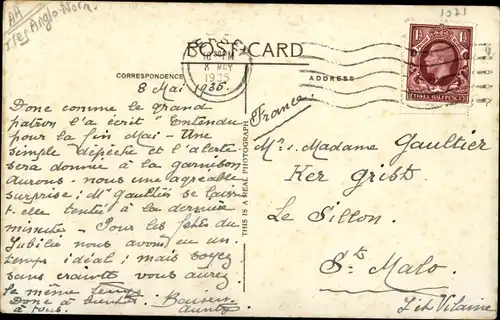 AA
Iles Anglo-Norm.
1521
POST CARD
JERSEY
8 MY
1935
CORRESPONDENCE
ADDRESS
THREE HALFPENCE
8 Mai 1935.
Donc comme le grand
patron l'a écrit "Entendu
pour la fin Mai - Une
simple dépêche et l'alerte
sera donnée à la garnison
aurons-nous une agréable
surprise; Mr Gaultier se laisse-
t-elle tentée à la dernière
minute - Pour les fêtes du
Jubilé nous avons eu un
temps idéal; mais soyez
sans crainte vous aurez
le même temps
Donc à bientôt. Baisers
à tous. Aunty
THIS IS A REAL PHOTOGRAPH
(France)
Mr & Madame Gaultier
Ker Grist
Le Sillon
St Malo
Ile et Vilaine